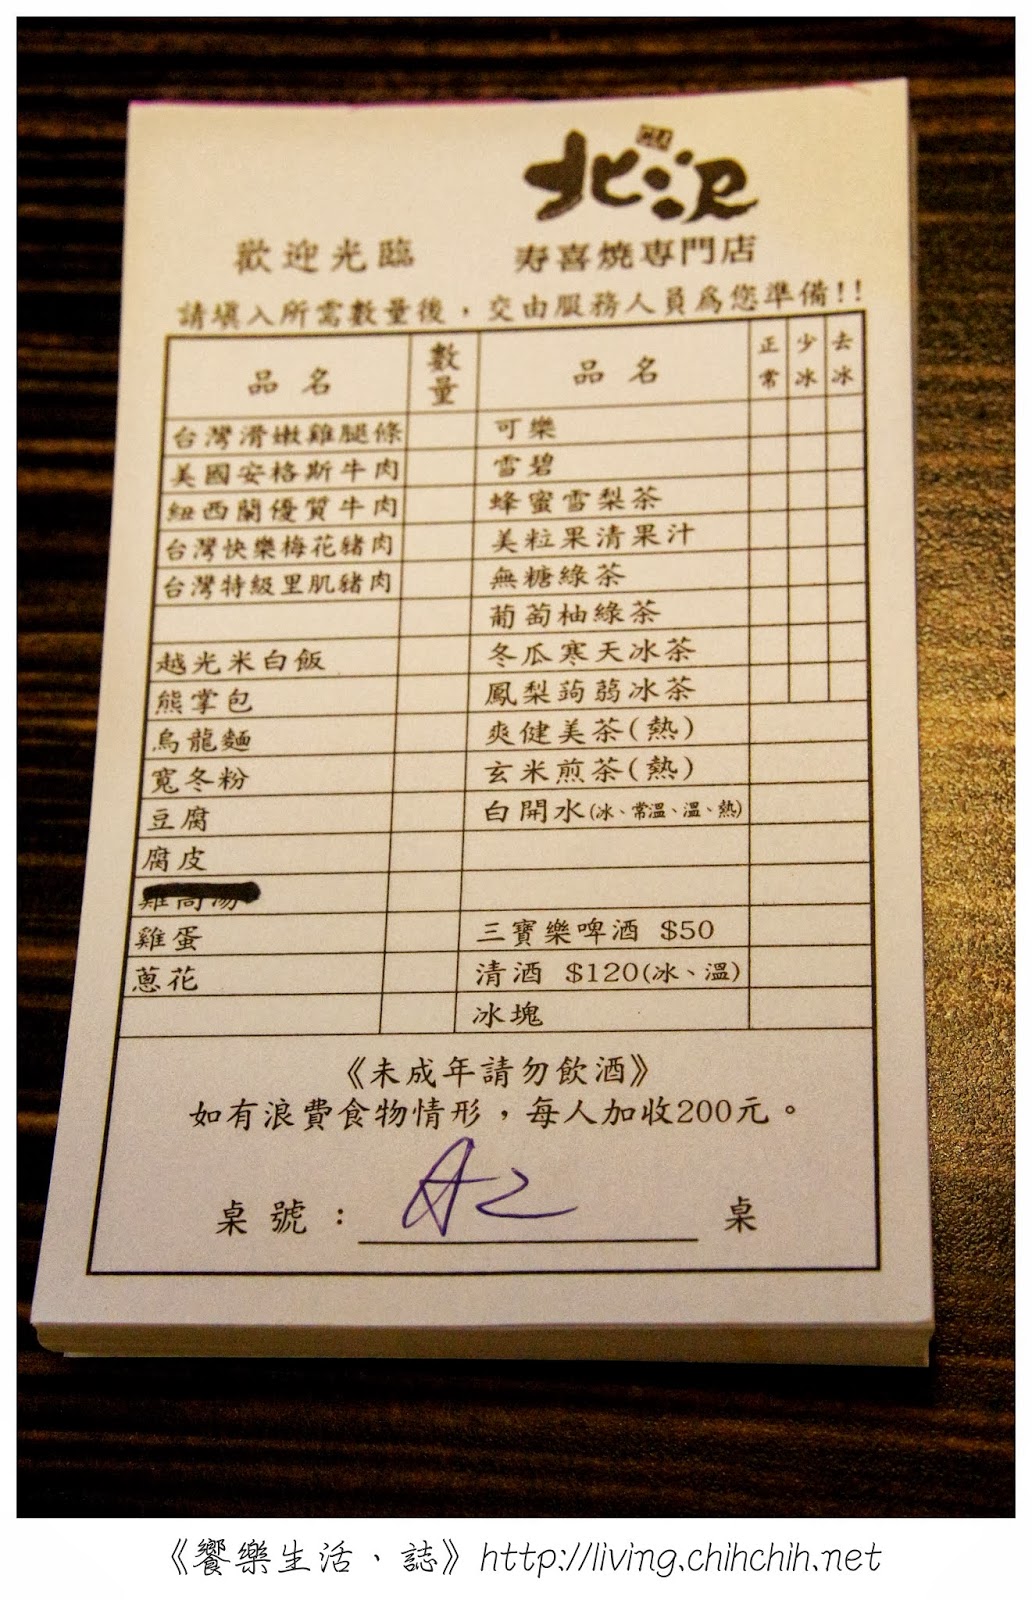 北沢
壽喜燒專門店
歡迎光臨
請填入所需數量後，交由服務人員為您準備!!
品名 數量 品名 正常 少冰 去冰
台灣滑嫩雞腿條 可樂
美國安格斯牛肉 雪碧
紐西蘭優質牛肉 蜂蜜雪梨茶
台灣快樂梅花豬肉 美粒果清果汁
台灣特級里肌豬肉 無糖綠茶
葡萄柚綠茶
越光米白飯 冬瓜寒天冰茶
熊掌包 鳳梨蒟蒻冰茶
烏龍麵 爽健美茶(熱)
寬冬粉 玄米煎茶(熱)
豆腐 白開水(冰、常溫、溫、熱)
腐皮
雞高湯
雞蛋 三寶樂啤酒 $50
蔥花 清酒 $120(冰、溫)
冰塊
《未成年請勿飲酒》
如有浪費食物情形，每人加收200元。
桌號：A2 桌
《饗樂生活、誌》http://living.chihchih.net